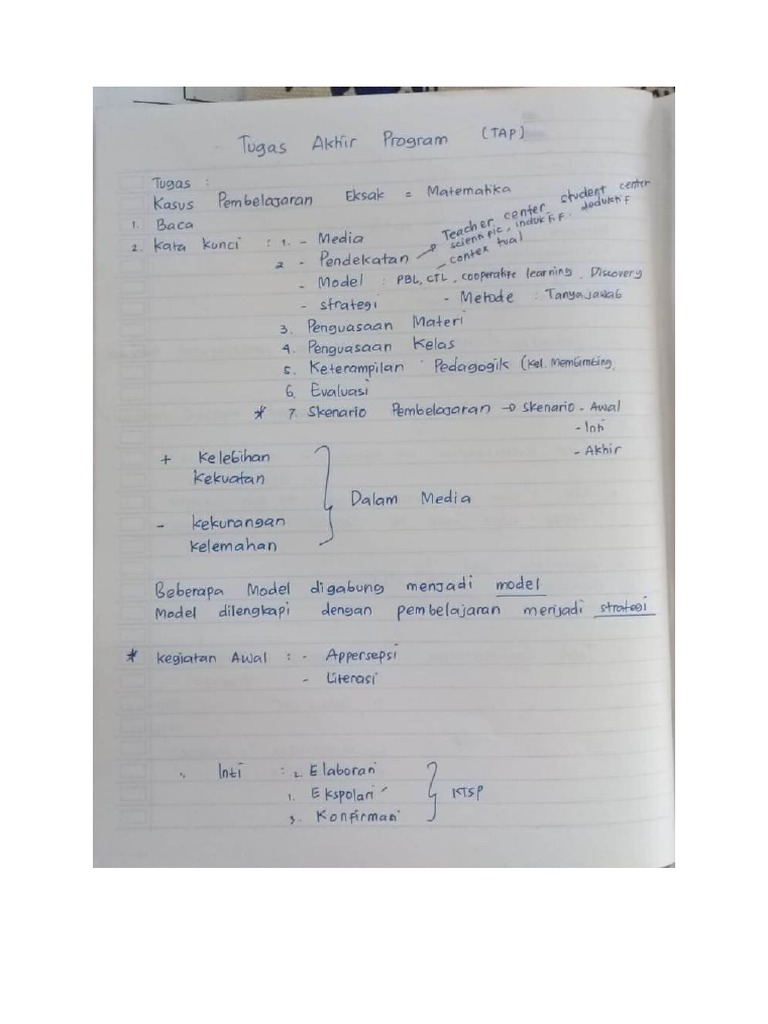 Tugas Akhir Program (TAP)
Tugas :
Kasus Pembelajaran Eksak = Matematika
1. Baca
2. Kata kunci : 1. - Media
2 - Pendekatan → Teacher center, student center
scientific, induktif, deduktif
- contextual
- Model : PBL, CTL, cooperatipe learning, Discovery
- strategi - Metode : Tanya jawab
3. Penguasaan Materi
4. Penguasaan Kelas
5. Keterampilan Pedagogik (kel. Membimbing,
6. Evaluasi
* 7. Skenario Pembelajaran → skenario - Awal
- Inti
- Akhir
+ Kelebihan
kekuatan
Dalam Media
- kekurangan
kelemahan
Beberapa Model digabung menjadi model
Model dilengkapi dengan pembelajaran menjadi strategi
* kegiatan Awal : - Appersepsi
- Literasi
Inti : 2. Elaborasi
1. Ekspolasi
3. Konfirmasi
KTSP